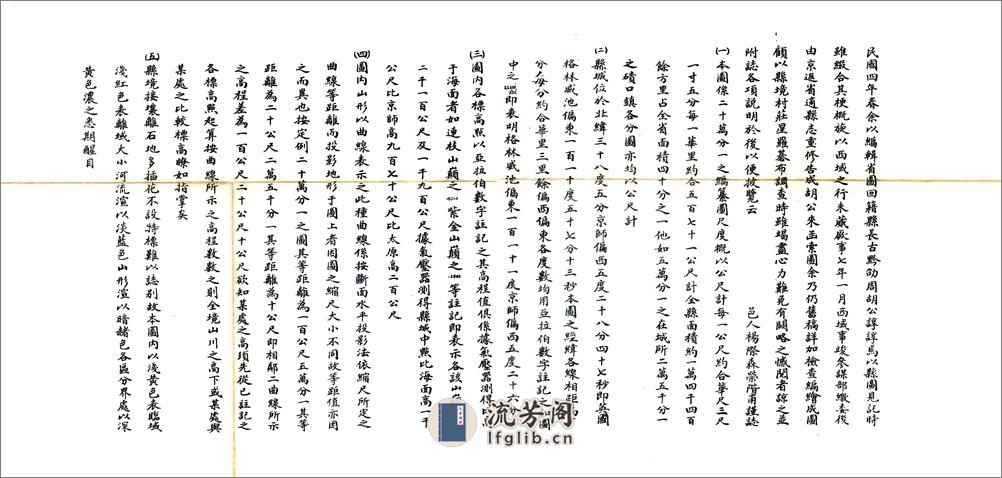 民國四年春余以編輯省圖回籍縣長古黔劬周胡公諄諄焉以縣圖見託時
雖綴合其梗概旋以西域之行未蕆厥事七年一月西域事竣參謀部繳委後
由京返省適縣志重修告成胡公來函索圖余乃仍舊稿詳加檢查編繪成圖
顧以縣境村莊星羅棊布調查時雖竭盡心力難免有闕略之憾閱者諒之並
附誌各項說明於後以便披覽云
邑人楊燦森榮階甫謹誌
㈠本圖係二十萬分一之編纂圖尺度概以公尺計每一公尺約合華尺三尺
一寸五分每一華里約合五百七十一公尺計全縣面積約一萬四千四百
餘方里占全省面積四十分之一他如五萬分一之在城所二萬五千分一
之磧口鎮各分圖亦均以公尺計
㈡縣城位於北緯三十八度五分京師偏西五度二十八分四十七秒即英國
格林威池偏東一百一十度五十七分十三秒本圖之經緯各線相距
分每分約合華里三里餘偏西偏東各度數均用亞拉伯數字註記之圖
中之 即表明格林威池偏東一百一十一度京師偏西五度二十六分
㈢圖內各標高點以亞拉伯數字註記之其高程值俱係據氣壓器測得
于海面者如連枝山巔之 紫金山巔之 等註記即表示各該山
二千一百公尺及一千九百公尺據氣壓器測得縣城中點比海面高一千
公尺比京師高九百七十公尺比太原高二百公尺
㈣圖內山形以曲線表示之此種曲線係按斷面水平投影法依縮尺所定之
曲線等距離而投影地形于圖上者因圖之縮尺大小不同故等距值亦因
之而異也按定例二十萬分一之圖其等距離為一百公尺五萬分一其等
距離為二十公尺二萬五千分一其等距離為十公尺即相鄰二曲線所示
之高程差為一百公尺二十公尺十公尺欲知某處之高須先從已註記之
各標高點起算按曲線所示之高程數數之則全境山川之高下或某處與
某處之比較標高瞭如指掌矣
㈤縣境接壤離石地多插花不設特標難以誌別故本圖內以淺黃色表臨域
淺紅色表離域大小河流渲以淡藍色山形渲以暗赭色各區分界處以深
黃色濃之悉期醒目
流芳阁
lfglib.cn